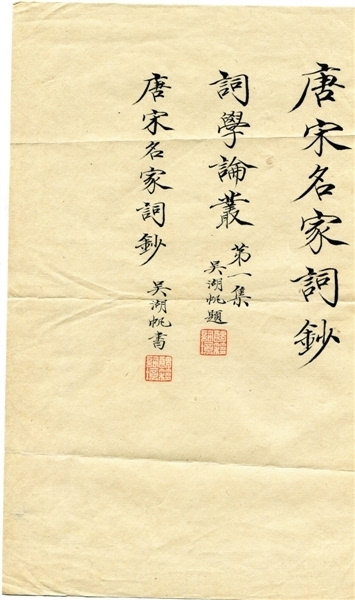 唐宋名家詞鈔
詞學論叢
第一集
吳湖帆題
唐宋名家詞鈔
吳湖帆書